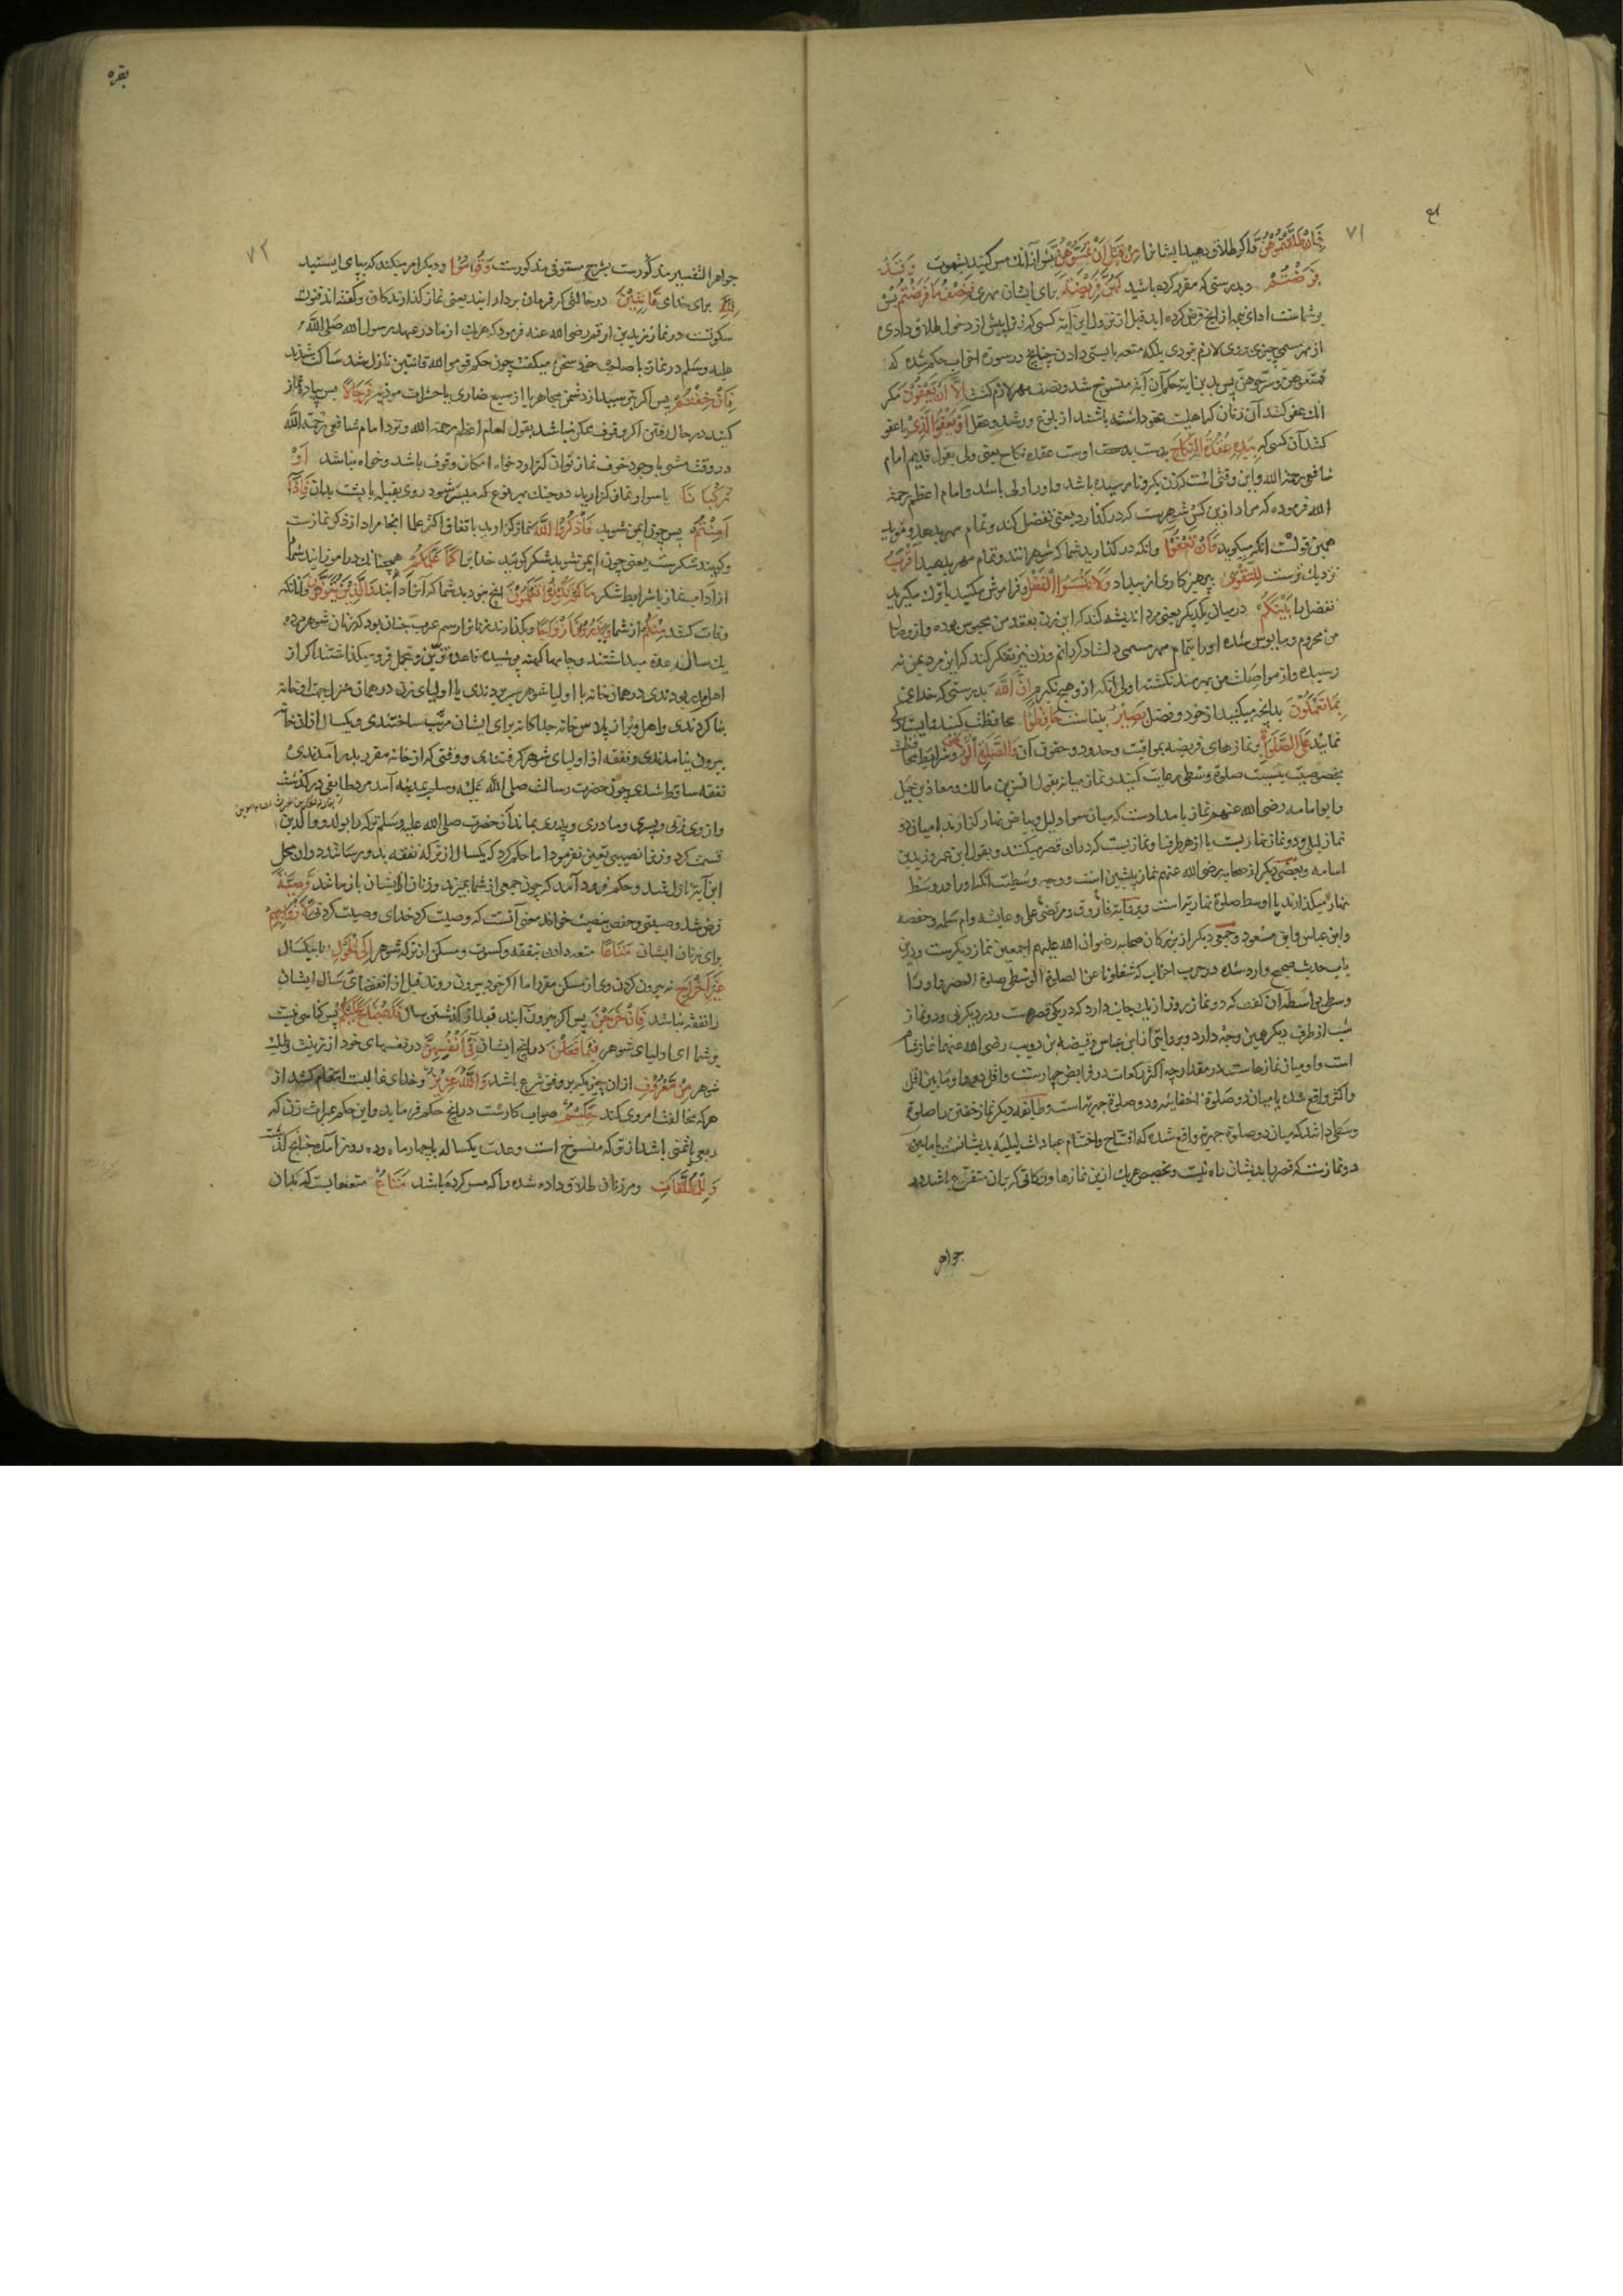 ۷۱
فَاِنْ طَلَّقْتُمُوْهُنَّ واکر طلاق دهید ایشانرا مِنْ قَبْلِ اَنْ تَمَسُّوْهُنَّ پیش از آنك مس کنید بشهوت وَ قَدْ
فَرَضْتُمْ وبدرستی که مقرر کرده باشید لَهُنَّ فَرِیْضَةً برای ایشان مهری فَنِصْفُ مَا فَرَضْتُمْ پس
بر شماست ادای نیمه از انچ فرض کرده اید قبل از نزول این آیه کسی که زنرا پیش از دخول طلاق دادی
از مهر مسمی چیزی بروی لازم نبودی بلکه متعه بایستی دادن چنانچ در سورة احزاب حکم شده که
فمتعوهن وسرحوهن پس بدین ایه حکم آن آیه منسوخ شد و نصف مهر لازم کشت اِلَّا اَنْ یَعْفُوْنَ مکر
انك عفو کنند آن زنان که اهلیت عفو داشته باشند از بلوغ و رشد و عقل اَوْ یَعْفُوَا الَّذِیْ یا عفو
کند آن کسی که بِیَدِهٖ عُقْدَةُ النِّکَاحِ بدست اوست عقده نکاح یعنی ولی بقول قدیم امام
شافعی رحمه الله واین وقتی است که زن بکر ونارسیده باشد و اورا ولی باشد وامام اعظم رحمة
الله فرموده که مراد ازین کس شوهرست که در کذارد یعنی تفضل کند و تمام مهر بدهد و مؤید
همین قولست انکه میکوید وَاَنْ تَعْفُوْا وانکه در کذارید شما که شوهرانند وتمام مهر بدهید اَقْرَبُ
نزدیك ترست لِلتَّقْوٰی بپرهیزکاری از بیداد وَلَا تَنْسَوُا الْفَضْلَ وفراموش مکنید یا ترك مکیرید
تفضل را بَیْنَکُمْ در میان یکدیکر یعنی مرد اندیشه کند که این زن بعقد من محبوس بوده واز وصال
من محروم و مایوس شده اورا بتمام مهر مسمی دلشاد کردانم وزن نیز تفکر کند که این مرد بمن نه
رسیده واز مواصلت من بهره مند نکشته اولی انکه ازو هیچ نکیرم اِنَّ اللّٰهَ بدرستی که خدای
بِمَا تَعْمَلُوْنَ بدانچه میکنید از جود و فضل بَصِیْرٌ بیناست حَافِظُوْا محافظت کنید
نمایید عَلَی الصَّلَوٰتِ بر نمازهای فریضه بمواقیت و حدود و حقوق آن وَالصَّلٰوةِ الْوُسْطٰی وشرایط
بخصوصیت بنسبت صلوة وسطی رعایت کنید ونماز میانه بقول انس بن مالك ومعاذ بن جبل
وابو امامه رضی الله عنهم نماز بامدادست که میان سواد لیل وبیاض نهار کذارند یا میان دو
نماز لیلی ودو نماز نهاریست یا از هر طرف او نمازیست که دران قصر میکنند وبقول ابن عمر وزید بن
اسامه وبعضی دیکر از صحابه رضی الله عنهم نماز پیشین است ووجه وسطیت آنکه اورا در وسط
نهار میکذارند یا اوسط صلوة نهاریه است وبروایة فاروق ومرتضی علی وعایشه وام سلمه وحفصه
وابن عباس وابن مسعود وجمعی دیکر از بزرکان صحابه رضوان الله علیهم اجمعین نماز دیکرست ودرین
باب حدیث صحیح وارد شده در حرب احزاب که شغلونا عن الصلوة الوسطی صلوة العصر واورا
وسطی بواسطه آن کفت که دو نماز روز از یك جانب دارد که در یکی قصرهست ودر دیکر نی ودو نماز
شب از طرف دیکر همین وجه دارد وبروایتی از ابن عباس وقبیصه بن ذویب رضی الله عنهما نماز شام
است واو میان نمازهاست در مقدار چه اکثر رکعات در فرایض چهارست واقل دو وما بین اقل
واکثر واقع شده یا میان دو صلوة اخفاییه ودو صلوة جهریه است وطایفه دیکر نماز خفتن را صلوة
وسطی دانند که میان دو صلوة جهریه واقع شده که افتتاح واختتام عبادات لیلیه بدیشانست یا مابین
دو نمازست که قصر را بدیشان راه نیست وتخصیص هریك ازین نمازها ونکاتی که بران متفرع باشد در
جواهر
بقره
۷۲
جواهر التفسیر مذکورست بشرح مستوفی مذکورست وَقُوْمُوْا ودیکر امر میکند که بپای ایستید
لِلّٰهِ برای خدای قَانِتِیْنَ در حالتی که فرمان بردار انید یعنی نماز کذارندکان وکفته اند قنوت
سکوتست در نماز زید بن ارقم رضی الله عنه فرمود که هریك از ما در عهد رسول الله صلی الله
علیه وسلم در نماز با صاحب خود سخن میکفت چون حکم قوموا لله قانتین نازل شد ساکت شدیم
فَاِنْ خِفْتُمْ پس اکر بترسید از دشمن مجاهر یا از سبع ضاری یا حشرات موذیه فَرِجَالًا پس پیاده نماز
کنید در حال رفتن اکر وقوف ممکن نباشد بقول امام اعظم رحمه الله ونزد امام شافعی رحمه الله
در وقت مشی با وجود خوف نماز توان کزارد خواه امکان وقوف باشد وخواه نباشد اَوْ
رُکْبَانًا یا سوار نماز کزارید در جنك بهر نوع که میسر شود روی بقبله یا پشت بدان فَاِذَا
اَمِنْتُمْ پس چون ایمن شوید فَاذْکُرُوا اللّٰهَ نماز کزارید باتفاق اکثر علما اینجا مراد از ذکر نمازست
وکویند شکرست یعنی چون ایمن شوید شکر کویید خدایرا کَمَا عَلَّمَکُمْ همچنانك در آموزانید شما
از آداب نماز یا شرایط شکر مَا لَمْ تَکُوْنُوْا تَعْلَمُوْنَ انچ نبودید شما که آنرا دانید وَالَّذِیْنَ یُتَوَفَّوْنَ وآنانکه
وفات کنند مِنْکُمْ از شما وَیَذَرُوْنَ اَزْوَاجًا وبکذارند زنانرا رسم عرب چنان بود که زنان شوهر مرده
یك سال عده میداشتند وجامها کهنه پوشیده قاعده تزیین وتجمل فرو میکذاشتند اکر از
اهل مدر بودندی در همان خانه یا اولیا شوهر بسر بردندی یا اولیای زن در همان منزل جهت او خانه
بنا کردندی واهل وبر از پلاس خانه جداکانه برای ایشان مرتب ساختندی ویکسال از ان خانه
بیرون نیامدندی ونفقه از اولیای شوهر کرفتندی ووقتی که از خانه مقرر بدر آمدندی
نفقه ساقط شدی چون حضرت رسالت صلی الله علیه وسلم بمدینه آمد مرد طایفی درکذشت
واز وی زنی وپسری ومادری وپدری بماند آن حضرت صلی الله علیه وسلم ترکه را بولد ووالدین
قسمت کرد وزنرا نصیبی تعیین نفرمود اما حکم کرد که یکسال از ترکه نفقه بدو رسانند دران محل
این آیه نازل شد وحکم فرود آمد که چون جمعی از شما بمیرند وزنان از ایشان باز مانند وَصِیَّةً
فرض شد وصیتی وحفص بنصب خواند معنی آنست که وصیت کرد خدای وصیت کردنی لِاَزْوَاجِهِمْ
برای زنان ایشان مَتَاعًا متعه دادن بنفقه وکسوت ومسکن از ترکه شوهر اِلَی الْحَوْلِ تا بیکسال
غَیْرَ اِخْرَاجٍ نه بیرون کردن وی از مسکن مقرر اما اکر خود بیرون روند قبل از انقضای سال ایشان
را نفقه نباشد فَاِنْ خَرَجْنَ پس اکر بیرون آیند بعد از کذشتن سال فَلَا جُنَاحَ عَلَیْکُمْ پس کناهی نیست
بر شما ای اولیای شوهر فِیْمَا فَعَلْنَ در انچ ایشان فِیْ اَنْفُسِهِنَّ در نفسهای خود از زینت وطلب
شوهر مِنْ مَعْرُوْفٍ از ان چیزیکه بر وفق شرع باشد وَاللّٰهُ عَزِیْزٌ وخدای غالبست انتقام کشد از
هرکه مخالفت امر وی کند حَکِیْمٌ صواب کارست در انچ حکم فرماید واین حکم بمیراث زن که
ربعی یا ثمنی باشد از ترکه منسوخ است وعدت یکساله بچهار ماه وده روز آمد چنانچ کذشت
وَلِلْمُطَلَّقَاتِ ومر زنان طلاق داده شده را که مس کرده باشد مَتَاعٌ متعه ایست که بدان